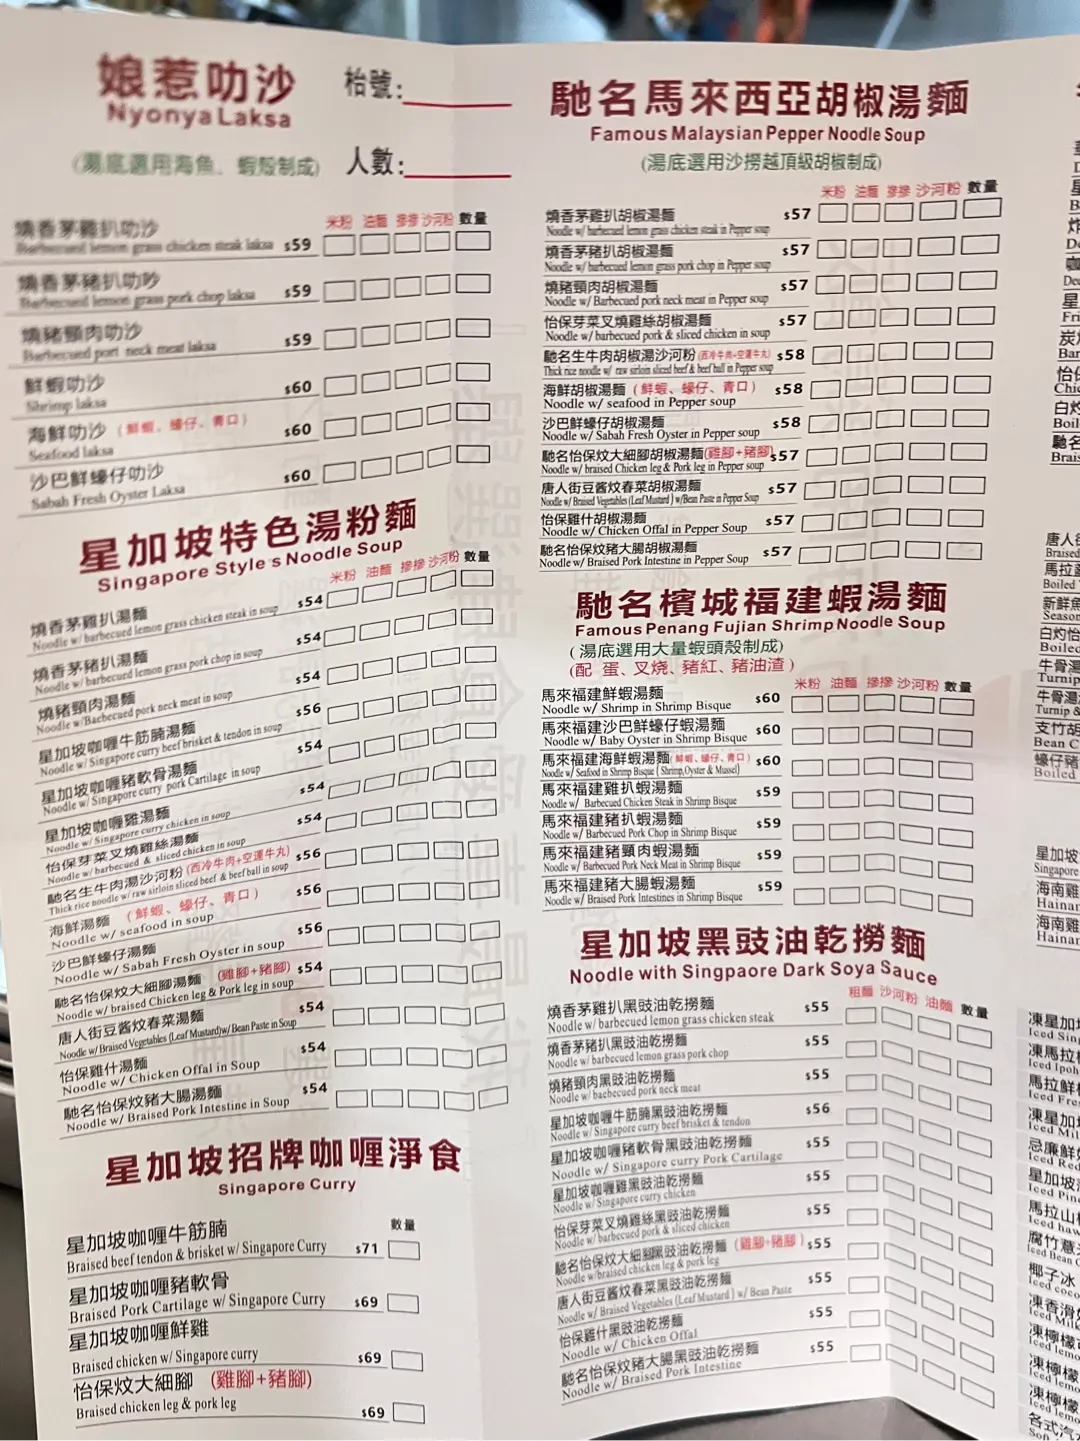 娘惹叻沙
Nyonya Laksa
(湯底選用海魚、蝦殼制成)
枱號:
人數:
米粉 油麵 摻摻 沙河粉 數量
燒香茅雞扒叻沙
Barbecued lemon grass chicken steak laksa $59
燒香茅豬扒叻吵
Barbecued lemon grass pork chop laksa $59
燒豬頸肉叻沙
Barbecued port neck meat laksa $59
鮮蝦叻沙
Shrimp laksa $60
海鮮叻沙 (鮮蝦、蠔仔、青口)
Seafood laksa $60
沙巴鮮蠔仔叻沙
Sabah Fresh Oyster Laksa $60
星加坡特色湯粉麵
Singapore Style's Noodle Soup
米粉 油麵 摻摻 沙河粉 數量
燒香茅雞扒湯麵
Noodle w/ barbecued lemon grass chicken steak in soup $54
燒香茅豬扒湯麵
Noodle w/ barbecued lemon grass pork chop in soup $54
燒豬頸肉湯麵
Noodle w/ Baebecued pork neck meat in soup $54
星加坡咖喱牛筋腩湯麵
Noodle w/ Singapore curry beef brisket & tendon in soup $56
星加坡咖喱豬軟骨湯麵
Noodle w/ Singapore curry pork Cartilage in soup $54
星加坡咖喱雞湯麵
Noodle w/ Singapore curry chicken in soup $54
怡保芽菜叉燒雞絲湯麵
Noodle w/ barbecued & sliced chicken in soup $54
馳名生牛肉湯沙河粉 (西冷牛肉+空運牛丸)
Thick rice noodle w/ raw sirloin sliced beef & beef ball in soup $56
海鮮湯麵 (鮮蝦、蠔仔、青口)
Noodle w/ seafood in soup $56
沙巴鮮蠔仔湯麵
Noodle w/ Sabah Fresh Oyster in soup $56
馳名怡保炆大細腳湯麵 (雞腳+豬腳)
Noodle w/ braised Chicken leg & Pork leg in soup $54
唐人街豆醬炆春菜湯麵
Noodle w/ Braised Vegetables (Leaf Mustard)w/Bean Paste in Soup $54
怡保雞什湯麵
Noodle w/ Chicken Offal in Soup $54
馳名怡保炆豬大腸湯麵
Noodle w/ Braised Pork Intestine in Soup $54
星加坡招牌咖喱淨食
Singapore Curry
數量
星加坡咖喱牛筋腩
Braised beef tendon & brisket w/ Singapore Curry $71
星加坡咖喱豬軟骨
Braised Pork Cartilage w/ Singapore Curry $69
星加坡咖喱鮮雞
Braised chicken w/ Singapore curry $69
怡保炆大細腳 (雞腳+豬腳)
Braised chicken leg & pork leg $69
馳名馬來西亞胡椒湯麵
Famous Malaysian Pepper Noodle Soup
(湯底選用沙撈越頂級胡椒制成)
米粉 油麵 摻摻 沙河粉 數量
燒香茅雞扒胡椒湯麵 $57
Noodle w/ barbecued lemon grass chicken steak in Pepper soup
燒香茅豬扒胡椒湯麵 $57
Noodle w/ barbecued lemon grass pork chop in Pepper soup
燒豬頸肉胡椒湯麵 $57
Noodle w/ Barbecued pork neck meat in Pepper soup
怡保芽菜叉燒雞絲胡椒湯麵 $57
Noodle w/ barbecued pork & sliced chicken in soup
馳名生牛肉胡椒湯沙河粉 (西冷牛肉+空運牛丸) $58
Thick rice noodle w/ raw sirloin sliced beef & beef ball in Pepper soup
海鮮胡椒湯麵 (鮮蝦、蠔仔、青口) $58
Noodle w/ seafood in Pepper soup
沙巴鮮蠔仔胡椒湯麵 $58
Noodle w/ Sabah Fresh Oyster in Pepper soup
馳名怡保炆大細腳胡椒湯麵(雞腳+豬腳) $57
Noodle w/ braised Chicken leg & Pork leg in Pepper soup
唐人街豆醬炆春菜胡椒湯麵 $57
Noodle w/ Braised Vegetables (Leaf Mustard) w/Bean Paste in Pepper Soup
怡保雞什胡椒湯麵 $57
Noodle w/ Chicken Offal in Pepper Soup
馳名怡保炆豬大腸胡椒湯麵 $57
Noodle w/ Braised Pork Intestine in Pepper Soup
馳名檳城福建蝦湯麵
Famous Penang Fujian Shrimp Noodle Soup
(湯底選用大量蝦頭殼制成)
(配 蛋、叉烧、豬紅、豬油渣)
米粉 油麵 摻摻 沙河粉 數量
馬來福建鮮蝦湯麵 $60
Noodle w/ Shrimp in Shrimp Bisque
馬來福建沙巴鮮蠔仔蝦湯麵 $60
Noodle w/ Baby Oyster in Shrimp Bisque
馬來福建海鮮蝦湯麵(鮮蝦、蠔仔、青口) $60
Noodle w/ Seafood in Shrimp Bisque (Shrimp,Oyster & Mussel)
馬來福建雞扒蝦湯麵 $59
Noodle w/ Barbecued Chicken Steak in Shrimp Bisque
馬來福建豬扒蝦湯麵 $59
Noodle w/ Barbecued Pork Chop in Shrimp Bisque
馬來福建豬頸肉蝦湯麵 $59
Noodle w/ Barbecued Pork Neck Meat in Shrimp Bisque
馬來福建豬大腸蝦湯麵 $59
Noodle w/ Braised Pork Intestines in Shrimp Bisque
星加坡黑豉油乾撈麵
Noodle with Singpaore Dark Soya Sauce
粗麵 沙河粉 油麵 數量
燒香茅雞扒黑豉油乾撈麵 $55
Noodle w/ barbecued lemon grass chicken steak
燒香茅豬扒黑豉油乾撈麵 $55
Noodle w/ barbecued lemon grass pork chop
燒豬頸肉黑豉油乾撈麵 $55
Noodle w/ baebecued pork neck meat
星加坡咖喱牛筋腩黑豉油乾撈麵 $56
Noodle w/ Singapore curry beef brisket & tendon
星加坡咖喱豬軟骨黑豉油乾撈麵 $55
Noodle w/ Singapore curry Pork Cartilage
星加坡咖喱雞黑豉油乾撈麵 $55
Noodle w/ Singapore curry chicken
怡保芽菜叉燒雞絲黑豉油乾撈麵 $55
Noodle w/ barbecued pork & sliced chicken
馳名怡保炆大細腳黑豉油乾撈麵 (雞腳+豬腳) $55
Noodle w/ braised chicken leg & pork leg
唐人街豆醬炆春菜黑豉油乾撈麵 $55
Noodle w/ Braised Vegetables (Leaf Mustard) w/ Bean Paste
怡保雞什黑豉油乾撈麵 $55
Noodle w/ Chicken Offal
馳名怡保炆豬大腸黑豉油乾撈麵 $55
Noodle w/ Braised Pork Intestine